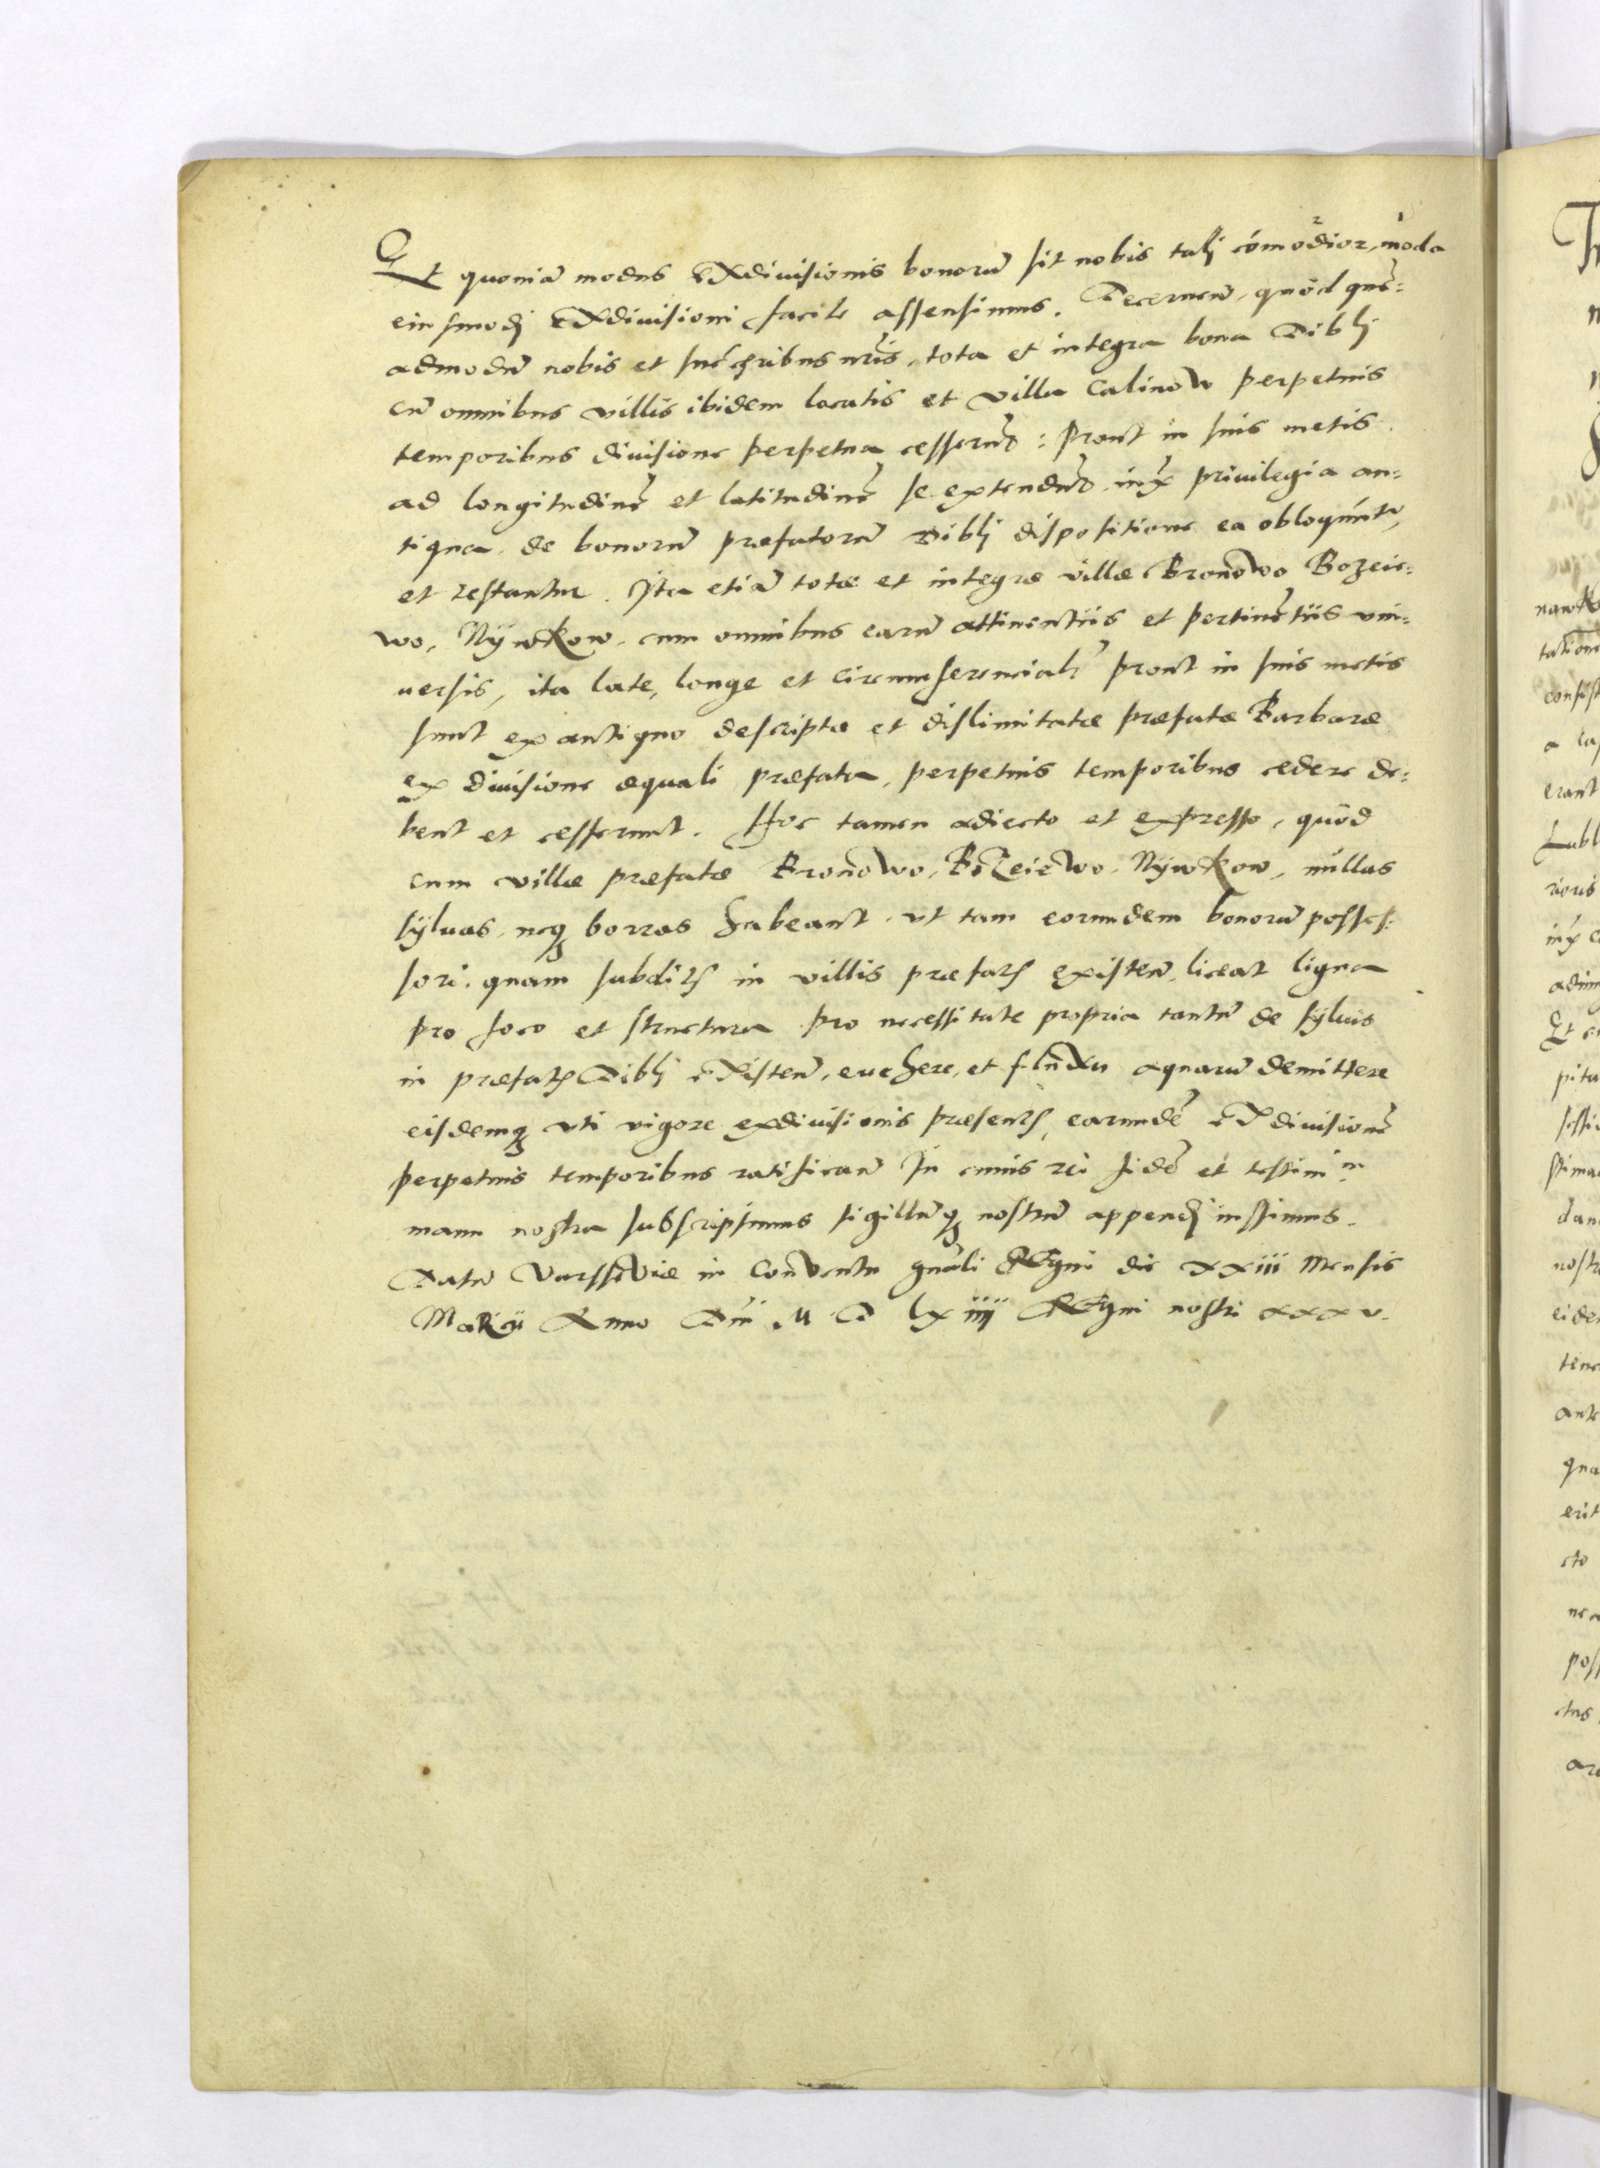 Et quoniã modus exdivisionis bonorũ sit nobis talj cómodior, moda
eiusmodj exdivisioni facile assensimus. Decernen̄. quod que͂=
admodũ nobis et suc̃choribus nr̃is. tota et integra bona Diblj
cũ omnibus villis ibidem locatis et villa Calinow perpetuis
temporibus divisione perpetua cesserũt: Prout in suis metis
ad longitudinẽ et latitudinẽ se extendũt. iux̃ privilegia an=
tiqua. de bonorũ praefatorũ Diblj dispositione ea obloquũtr̃,
et testantur. Ita etiã totae et integrae villae Bronowo Bozeie=
wo, Nÿwkow. cum omnibus earũ attinentiis et pertinẽtiis vni=
uersis, ita late, longe et circumferencialr̃ prout in suis metis
sunt ex antiquo descriptae et dislimitatae praefatae Barbarae
ex divisione aequali praefata, perpetuis temporibus cedere de=
bent et cesserunt. Hoc tamen adiecto et expresso, quod
cum villae praefatae Bronowo, Bozeiewo, Nÿwkow, nullas
sÿluas, neq3 borras habeant. vt tam eorumdem bonorũ posses=
sori. quam subditis in villis praefatis existen̄. liceat ligna
pro foco et structura pro necessitate propria tantũ de sÿluis
in praefatis Diblj existen̄. euehere, et fluxu aquarũ demittere
eisdemq3 vti vigore exdivisionis praesentis, earumdẽ exdivisionẽ
perpetuis temporibus ratifican̄ In cuius rei fidẽ et testimm̃
manu nostra subscripsimus sigillũq3 nostrũ appendj iussimus.
Datũ Varssoviae in conventu gnãli Regni die xxiii Mensis
Marcii Anno Dñi M D lxiiij Regni nostri xxxv.